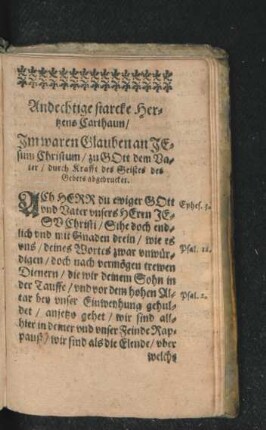 Andechtige starcke Her-
tzens Carthaun/
Im waren Glauben an JE-
sum Christum/ zu GOtt dem Va-
ter/ durch Krafft des Geistes des
Gebets abgedrucket.
ACh HERR du ewiger GOtt
vnd Vater vnsers HErrn JE-
SV Christi/ Sihe doch end-
lich vnd mit Gnaden drein/ wie es
vns/ deines Wortes zwar vnwür-
digen/ doch nach vermögen trewen
Dienern/ die wir deinem Sohn in
der Tauffe/ vnd vor dem hohen Al-
tar bey vnser Einweyhung gehul-
det/ anjetzo gehet/ wir sind all-
hier in deiner vnd vnser Feinde Rap-
pauß/ wir sind als die Elende/ vber
welche
Ephes. 3.
Psal. 2.